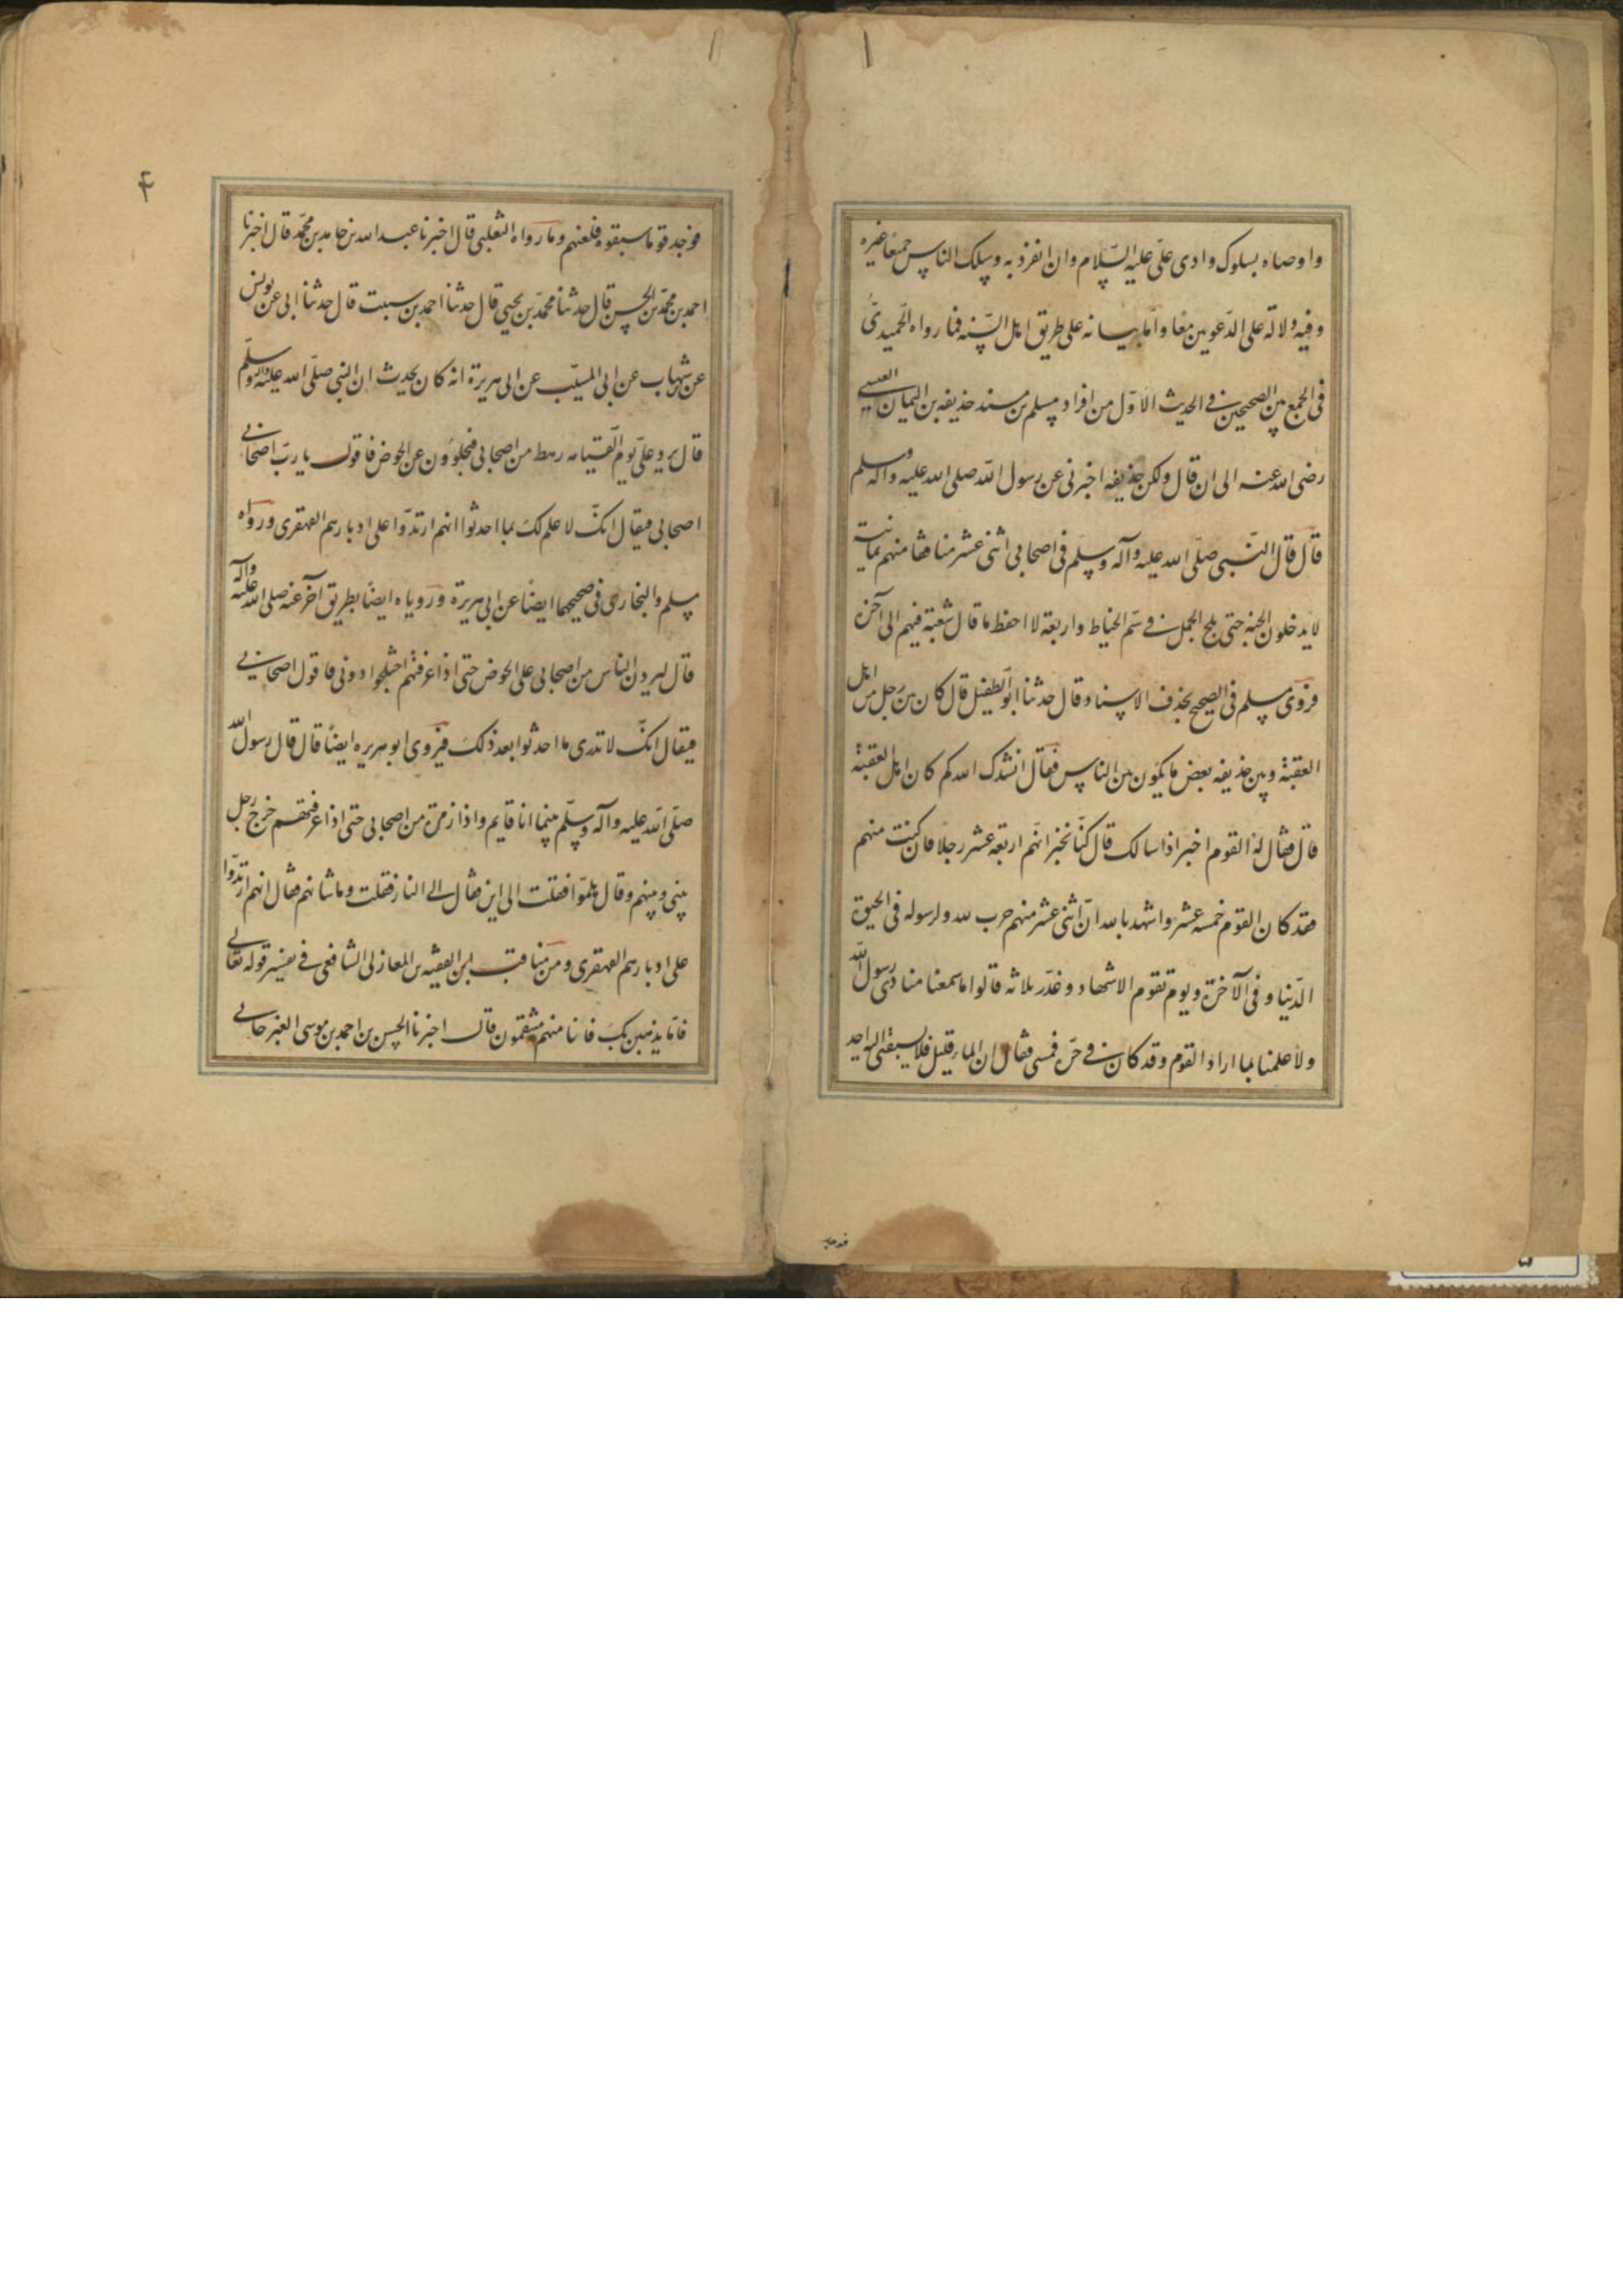 واوصاه بسلوك وادى علىّ عليه السّلام وان انفرد به وسلك الناس جميعا غيره
وفيه دلالة على الدّعويين معا وامّا بيانه على طريق اهل السّنه فما رواه الحميدىّ
فى الجمع بين الصحيحين فى الحديث الاوّل من افراد مسلم من مسند حذيفه بن اليمان العبسى
رضى الله عنه الى ان قال ولكن حذيفه اخبرنى عن رسول الله صلى الله عليه وآله وسلم
قال قال النّبى صلّى الله عليه وآله وسلّم فى اصحابى اثنى عشر منافقا منهم ثمانية
لا يدخلون الجنه حتى يلج الجمل فى سّم الخياط واربعة لا احفظ ما قال شعبة فيهم الى آخره
فروى مسلم فى الصحيح بحذف الاسناد وقال حدثنا ابو الطفيل قال كان بين رجل من اهل
العقبة وبين حذيفه بعض ما يكون بين الناس فقال انشدك الله كم كان اهل العقبة
قال فقال له القوم اخبر اذا سالك قال كنّا نخبر انّهم اربعة عشر رجلا فان كنت منهم
فقد كان القوم خمسه عشر واشهد بالله انّ اثنى عشر منهم حرب لله ولرسوله فى الحيوة
الدّنيا وفى الآخرة ويوم تقوم الاشهاد وعذّر ثلاثه قالوا ما سمعنا منادى رسول الله
ولا علمنا بما اراد القوم وقد كان فى حرّة فمسى فقال ان الماء قليل فلا يسبقنى اليه احد
فوجد
۴
فوجد قوما سبقوه فلعنهم وما رواه الثعلبى قال اخبرنا عبد الله بن حامد بن محمّد قال اخبرنا
احمد بن محمّد بن الحسن قال حدثنا محمّد بن يحيى قال حدثنا احمد بن سبت قال حدثنا ابى عن يونس
عن شهاب عن ابى المسيّب عن ابى هريرة انه كان يحدث ان النبى صلّى الله عليه وآله وسلّم
قال يرد علىّ يوم القيامه رهط من اصحابى فيجلوون عن الحوض فاقول يا ربّ اصحابى
اصحابى فيقال انكّ لا علم لك بما احدثوا انهم ارتدّوا على ادبارهم القهقرى ورواه
مسلم والبخارى فى صحيحهما ايضا عن ابى هريرة وروياه ايضا بطريق آخر عنه صلى الله عليه وآله
قال ليردن الناس من اصحابى على الحوض حتى اذا عرفتهم اختلجوا دونى فاقول اصحابى
فيقال انكّ لا تدرى ما احدثوا بعد ذلك فيروى ابو هريره ايضا قال قال رسول الله
صلّى الله عليه وآله وسلّم بينما انا قايم واذا زمرة من اصحابى حتى اذا عرفتهم خرج رجل
بينى وبينهم وقال هلمّوا فقلت الى اين فقال الى النار فقلت وما شانهم فقال انهم ارتدّوا
على ادبارهم القهقرى ومن مناقب ابن الفقيه بن المغازلى الشافعى فى تفسير قوله تعالى
فامّا نذهبن بك فانا منهم منتقمون قال اخبرنا الحسن بن احمد بن موسى